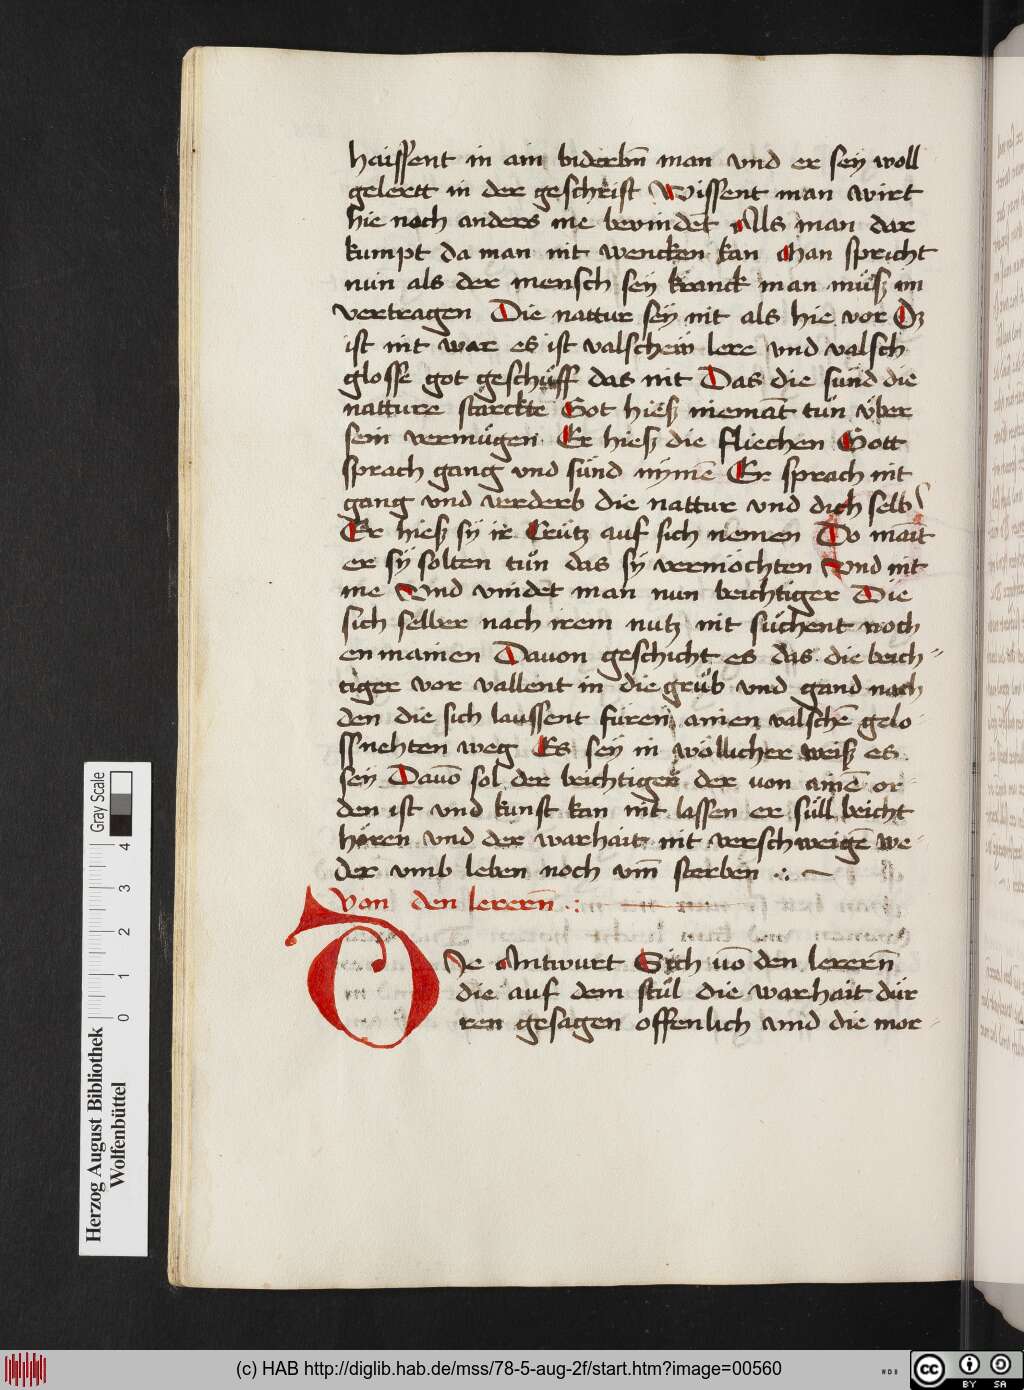 haissent in ain biderbn̄ man vnd er sey woll
gelertt in der geschrift Wissent man wirt
hie noch anders me bevindet Als man dar
kumpt da man nit wencken kan Man spricht
nun als der mensch sey kranck man müsz im
vertragen Die nattur sey nit als hie vor Dz
ist nit war es ist valschein lere vnd valsch
glosse got geschüff das nit Das die sund die
natture starckte Got hiesz niemāt tün über
sein vermügen Er hiesz die fliechen Gott
sprach gang vnd sünd nymē Er sprach nit
gang vnd verderb die nattur vnd dich selb
Er hiesz sy ir Crütz auf sich nemen Do maīt
er sy solten tün das sy vermöchten Vnd nit
me Vnd vindet man nun beichtiger Die
sich selber nach irem nutz nit süchent noch
en mainen Dauon geschicht es das die beich⸗
tiger vor vallent in die grüb vnd gand nach
den die sich laussent füren ainen valschē gelo-
ssnehten weg Es sey in wöllicher weisz es
sey Dauō sol der beichtiger der von ainē or-
den ist vnd kunst kan nit lassen er süll beicht
hören vnd der warhait nit verschweigē we-
der vmb leben noch vm̄ sterben
Van den lerern̄
DJe Antwurt Sich uō den lerern̄
die auf dem stül die warhait dür
ren gesagen offenlich vnd die mor-
Herzog August Bibliothek
Wolfenbüttel
Gray Scale
0 1 2 3 4
(c) HAB http://diglib.hab.de/mss/78-5-aug-2f/start.htm?image=00560
WDB
cc BY SA